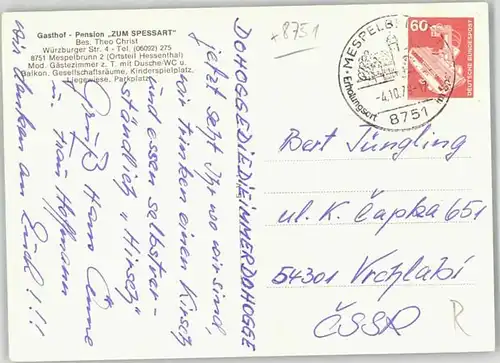 Gasthof - Pension „ZUM SPESSART"
Bes. Theo Christ
Würzburger Str. 4 - Tel. (06092) 275
8751 Mespelbrunn 2 (Ortsteil Hessenthal)
Mod. Gästezimmer z. T. mit Dusche-WC u.
Balkon. Gesellschaftsräume, Kinderspielplatz,
Liegewiese, Parkplatz
DOHOGGEDIEDIEIMMERDOHOGGE
jetzt seht Ihr wo wir sind,
wir trinken einen Kirsch
und essen selbstver-
ständlich „Hirsch"
Gruß Hans
u. Frau Hoffmann
wir danken an Euch!!!
8751
MESPELB
Erholungsort
-4.10.7
8751
60
DEUTSCHE BUNDESPOST
Bert Jüngling
ul. K. Čapka 651
54301 Vrchlabi
ČSSR
R